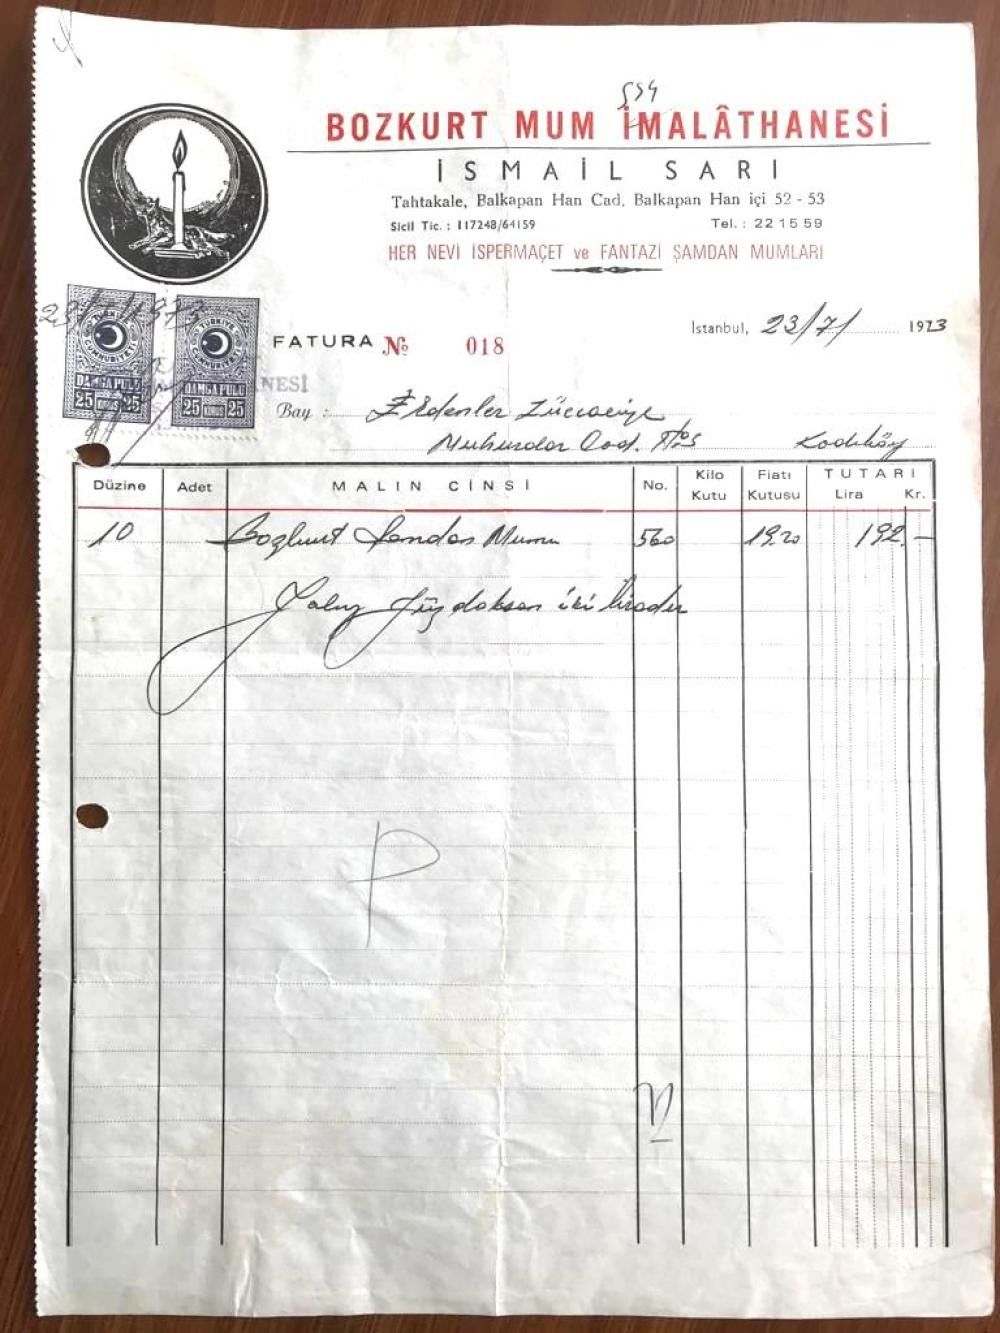 554
BOZKURT MUM İMALÂTHANESİ
İSMAİL SARI
Tahtakale, Balkapan Han Cad. Balkapan Han içi 52 - 53
Sicil Tic. : 117248/64159 Tel. : 22 15 59
HER NEVİ İSPERMAÇET ve FANTAZİ ŞAMDAN MUMLARI
23/7/1973
TÜRKİYE CUMHURİYETİ DAMGA PULU 25 KURUŞ 25
TÜRKİYE CUMHURİYETİ DAMGA PULU 25 KURUŞ 25
İstanbul, 23/7/ 1973
FATURA № 018
NESİ
Bay : Erdenler Züccaciye
Muhurdar Cad. Kadıköy
Düzine Adet MALIN CİNSİ No. Kilo Kutu Fiatı Kutusu TUTARI Lira Kr.
10 Bozkurt Şandan Mumu 560 19.20 192.—
Yalnız Yüzdoksan iki liradır
P